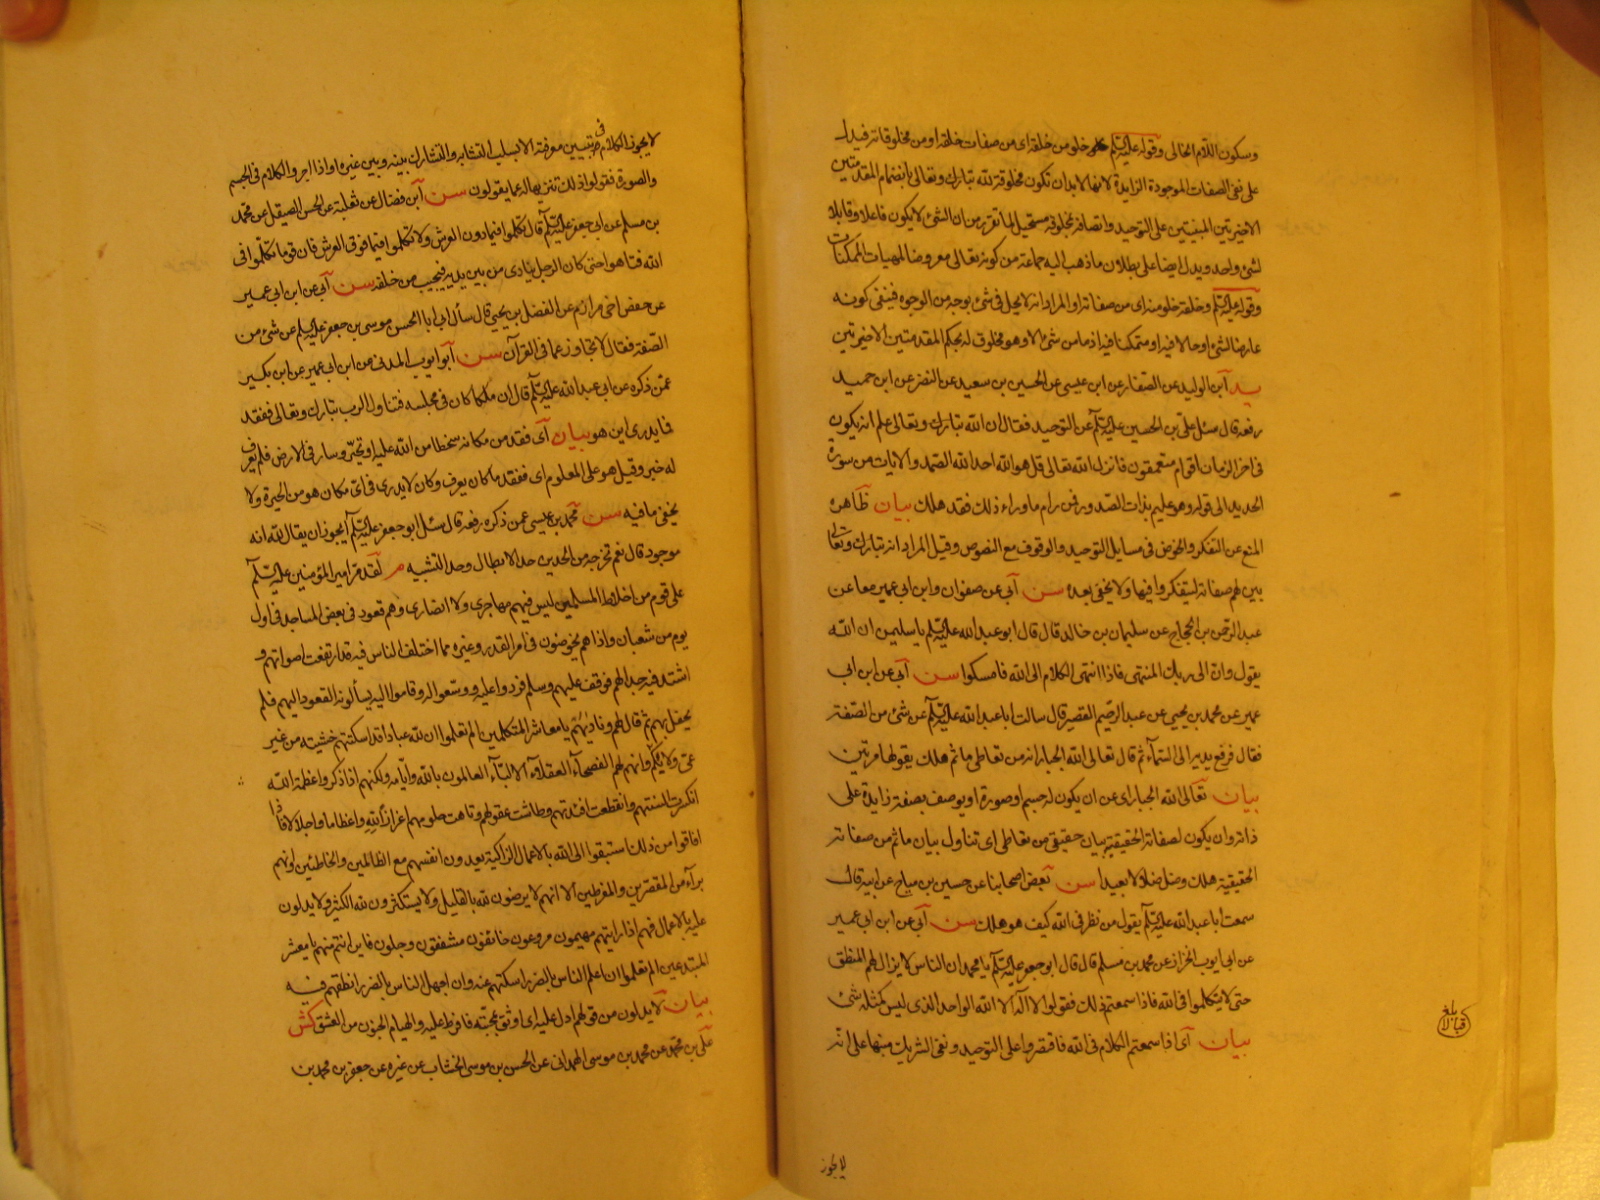 وسكون اللام الخالى وقوله عليه السلام خلو من خلقه اى من صفات خلقه او من مخلوقاته فيدل
على نفى الصفات الموجودة الزايدة لانها لابد ان تكون مخلوقة لله تبارك وتعالى بانضمام المقدمتين
الاخيرتين المبنيتين على التوحيد واتصافه بمخلوقه مستحيل لما تقرر من ان الشئ لا يكون فاعلا وقابلا
لشئ واحد ويدل ايضا على بطلان ما ذهب اليه جماعة من كونه تعالى معروضا لمهيات الممكنات
وقوله عليه السلام وخلقه خلو منه اى من صفاته او المراد انه لا يحل فى شئ بوجه من الوجوه فينفى كونه
عارضا لشئ او حالا فيه او متمكنا فيه اذ ما من شئ الا وهو مخلوق له بحكم المقدمتين الاخيرتين
يد ابن الوليد عن الصفار عن ابن عيسى عن الحسين بن سعيد عن النضر عن ابن حميد
رفعه قال سئل على بن الحسين عليه السلام عن التوحيد فقال ان الله تبارك وتعالى علم انه يكون
فى اخر الزمان اقوام متعمقون فانزل الله تعالى قل هو الله احد الله الصمد والايات من سورة
الحديد الى قوله وهو عليم بذات الصدور فمن رام ما وراء ذلك فقد هلك بيان ظاهره
المنع عن التفكر والخوض فى مسايل التوحيد والوقوف مع النصوص وقيل المراد انه تبارك وتعالى
بين لهم صفاته ليتفكروا فيها ولا يخفى بعده سن ابى عن صفوان وابن ابى عمير معا عن
عبد الرحمن بن الحجاج عن سليمان بن خالد قال قال ابو عبد الله عليه السلام يا سليمن ان الله
يقول وان الى ربك المنتهى فاذا انتهى الكلام الى الله فامسكوا سن ابى عن ابن ابى
عمير عن محمد بن يحيى عن عبد الرحيم القصير قال سالت ابا عبد الله عليه السلام عن شئ من الصفة
فقال فرفع يديه الى السماء ثم قال تعالى الله الجبار انه من تعاطى ما ثم هلك يقولها مرتين
بيان تعالى الله الجبار اى عن ان يكون له جسم او صورة او يوصف بصفة زايدة على
ذاته وان يكون لصفاته الحقيقية بيان حقيقى من تعاطى اى تناول بيان ما ثم من صفاته
الحقيقية هلك وضل ضلالا بعيدا سن بعض اصحابنا عن حسين بن مياح عن ابيه قال
سمعت ابا عبد الله عليه السلام يقول من نظر فى الله كيف هو هلك سن ابى عن ابن ابى عمير
عن ابى ايوب الخزاز عن محمد بن مسلم قال قال ابو جعفر عليه السلام يا محمد ان الناس لا يزال لهم المنطق
حتى لا يتكلموا فى الله فاذا سمعتم ذلك فقولوا لا اله الا الله الواحد الذى ليس كمثله شئ
بيان اى اذا سمعتم الكلام فى الله فاقتصروا على التوحيد ونفى الشريك منبها على انه
لا يجوز
لا يجوز الكلام فى تبيين معرفة الا بسلب التشابه والتشارك بينه وبين غيره او اذا اجروا الكلام فى الجسم
والصورة فقولوا ذلك تنزيها له عما يقولون سن ابن فضال عن ثعلبة عن الحسن الصيقل عن محمد
بن مسلم عن ابى جعفر عليه السلام قال تكلموا فيما دون العرش ولا تكلموا فيما فوق العرش فان قوما تكلموا فى
الله فتاهوا حتى كان الرجل ينادى من بين يديه فيجيب من خلفه سن ابى عن ابن ابى عمير
عن حفص اخى مرازم عن الفضل بن يحيى قال سأل ابى ابا الحسن موسى بن جعفر عليه السلم عن شئ من
الصفة فقال لا تجاوز عما فى القرآن سن ابو ايوب المدنى عن ابن ابى عمير عن ابن بكير
عمن ذكره عن ابى عبد الله عليه السلام قال ان ملكا كان فى مجلسه فتناول الرب تبارك وتعالى ففقد
فما يدرى اين هو بيان اى فقد من مكانه سخطا من الله عليه او تحير وسار فى الارض فلم يعرف
له خبر وقيل هو على المعلوم اى ففقد ما كان يعرف وكان لا يدرى فى اى مكان هو من الحيرة ولا
يخفى ما فيه سن محمد بن عيسى عمن ذكره رفعه قال سئل ابو جعفر عليه السلام ايجوز ان يقال لله انه
موجود قال نعم تخرجه من الحدين حد الابطال وحد التشبيه م لقد مر امير المؤمنين عليه السلام
على قوم من اخلاط المسلمين ليس فيهم مهاجرى ولا انصارى وهم قعود فى بعض المساجد فى اول
يوم من شعبان واذا هم يخوضون فى امر القدر وغيره مما اختلف الناس فيه قد ارتفعت اصواتهم و
اشتد فيه جدالهم فوقف عليهم وسلم فردوا عليه ووسعوا له وقاموا اليه يسألونه القعود اليهم فلم
يحفل بهم ثم قال لهم وناديهم يا معاشر المتكلمين الم تعلموا ان لله عبادا قد اسكتتهم خشيته من غير
عى ولا بكم وانهم لهم الفصحاء العقلاء الالباء العالمون بالله وايامه ولكنهم اذا ذكروا عظمة الله
انكسرت السنتهم وانقطعت افئدتهم وطاشت عقولهم وتاهت حلومهم اعزازا لله واعظاما واجلالا فاذا
افاقوا من ذلك استبقوا الى الله بالاعمال الزاكية يعدون انفسهم مع الظالمين والخاطئين وانهم
براء من المقصرين والمفرطين الا انهم لا يرضون لله بالقليل ولا يستكثرون لله الكثير ولا يدلون
عليه بالاعمال فهم اذا رايتهم مهيمون مروعون خائفون مشفقون وجلون فاين انتم منهم يا معشر
المبتدعين الم تعلموا ان اعلم الناس بالضرر اسكتهم عنه وان اجهل الناس بالضرر انطقهم فيه
بيان لا يدلون من قولهم ادل عليه اى اوثق بمحبته فافرط عليه والهيام الجنون من العشق كش
على بن محمد عن محمد بن موسى الهمدانى عن الحسن بن موسى الخشاب عن غيره عن جعفر بن محمد بن